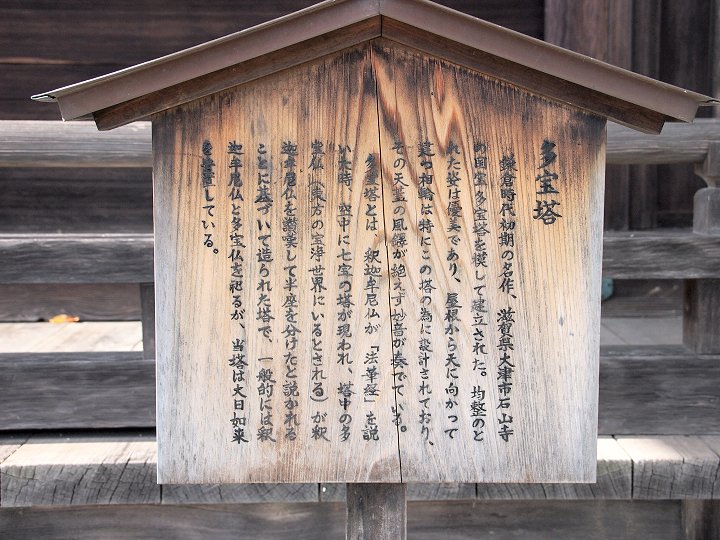 多宝塔
鎌倉時代初期の名作、滋賀県大津市石山寺
の国宝多宝塔を模して建立された。均整のと
れた姿は優美であり、屋根から天に向かって
建つ相輪は特にこの塔の為に設計されており、
その天蓋の風鐸が絶えず妙音が奏でている。
多宝塔とは、釈迦牟尼仏が「法華経」を説
いた時、空中に七宝の塔が現われ、塔中の多
宝仏（東方の宝浄世界にいるとされる）が釈
迦牟尼仏を讃嘆して半座を分けたと説かれる
ことに基づいて造られた塔で、一般的には釈
迦牟尼仏と多宝仏を祀るが、当塔は大日如来
を安置している。